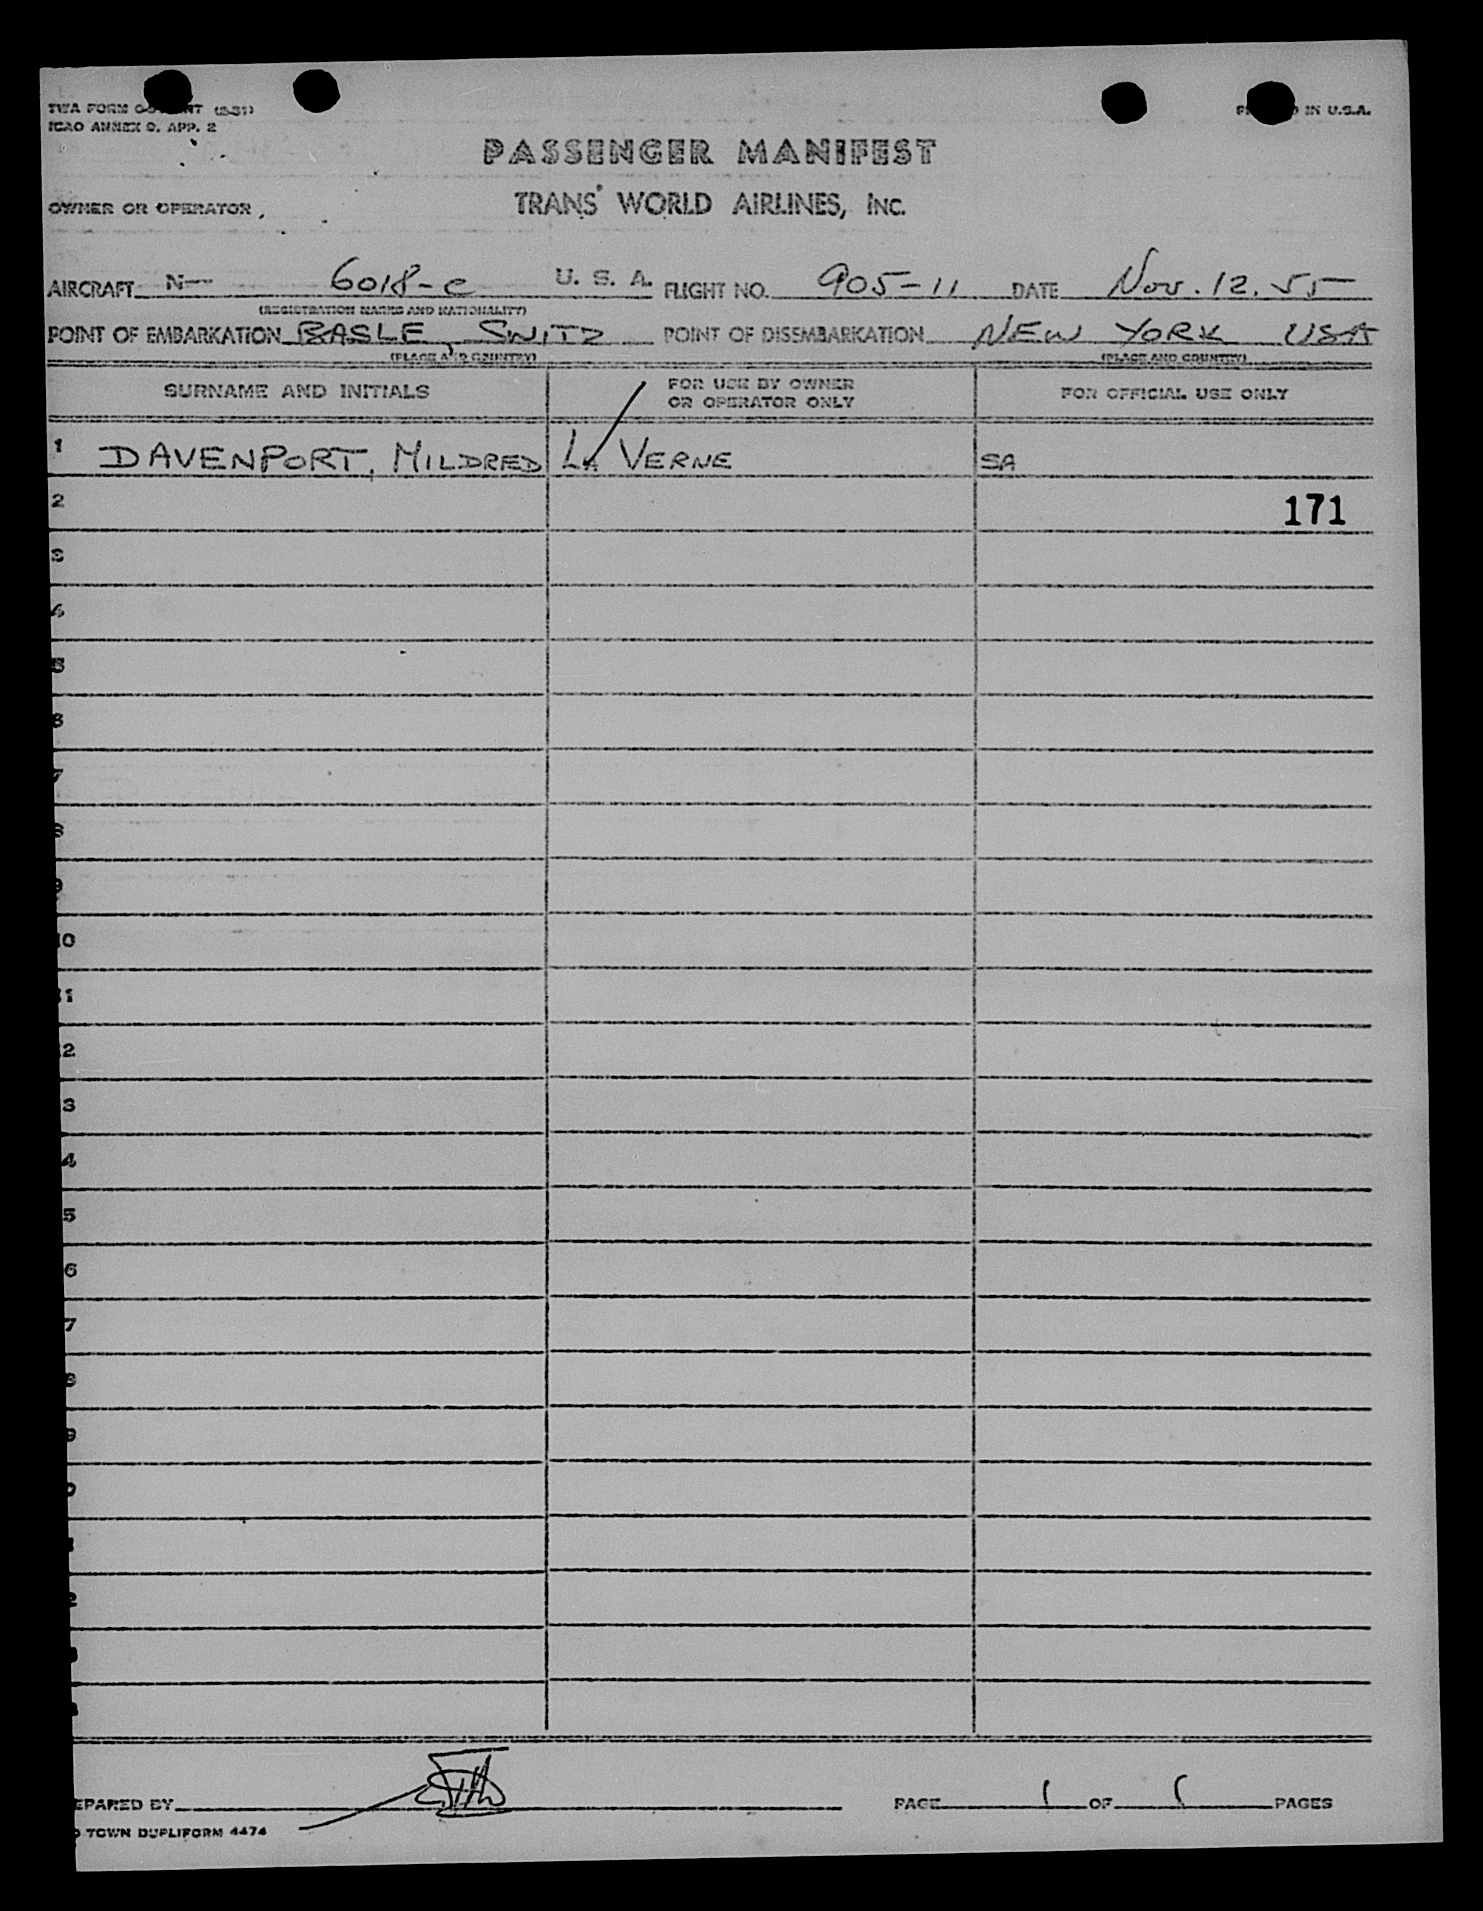 TWA FORM (5-51) PRINTED IN U.S.A.
ICAO ANNEX 9. APP. 2
PASSENGER MANIFEST
OWNER OR OPERATOR TRANS WORLD AIRLINES, INC.
AIRCRAFT N- 6018-C U. S. A. FLIGHT NO. 905-11 DATE Nov. 12. 55
(REGISTRATION MARKS AND NATIONALITY)
POINT OF EMBARKATION BASLE, SWITZ POINT OF DISEMBARKATION NEW YORK USA
(PLACE AND COUNTRY) (PLACE AND COUNTRY)
SURNAME AND INITIALS FOR USE BY OWNER OR OPERATOR ONLY FOR OFFICIAL USE ONLY
1 DAVENPORT, MILDRED LA VERNE SA
2 171
3
4
5
6
7
8
9
10
11
12
3
4
5
6
7
8
9
0
1
2
3
4
EPARED BY PAGE 1 OF 1 PAGES
TOWN DUPLIFORM 4474